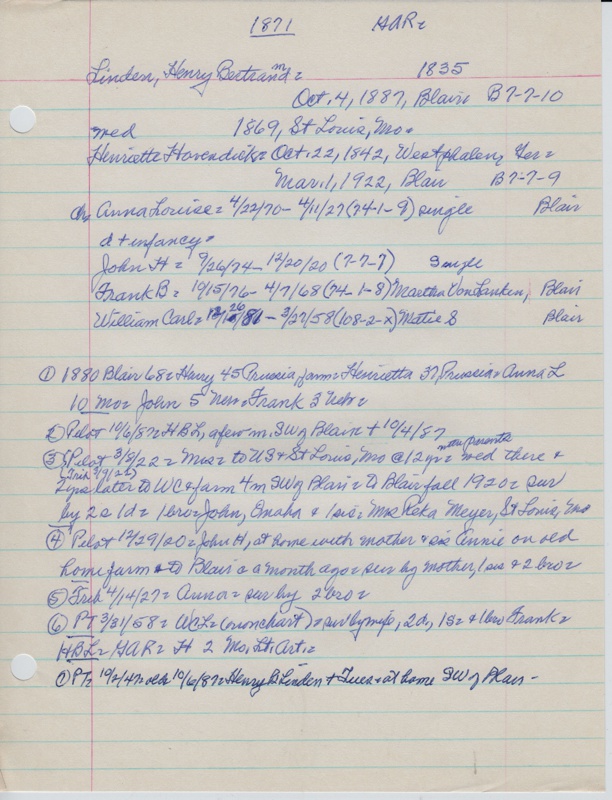 1871 GAR=
Linden, Henry Bertrand= m 1835
Oct. 4, 1887, Blair B7-7-10
med 1869, St Louis, Mo=
Henrietta Hovendick= Oct. 22, 1842, Westphalen, Ger=
Mar. 1, 1922, Blair B7-7-9
Ch Anna Louise= 4/22/70- 4/11/27(74-1-9) single Blair
d + infancy=
John H= 9/26/74- 12/20/20 (7-7-7) Single
Frank B= 10/15/76- 4/7/68(74-1-8) Martha Von Lanken, Blair
William Carl= /26/81- 3/27/58(108-2-X) Matie S Blair
① 1880 Blair 68= Harry 45 Prussia, farm= Henrietta 37, Prussia= Anna L
10 mo= John 5 Neb= Frank 3 Neb=
2) Pilot 10/6/87= H B L, a few m. SW of Blair + 10/4/87
③ (Pilot 3/8/22= Mrs= to US + St Louis, Mo @ 12 yr= with parents wed there &
(Trib 3/9/22) 2 yrs later to WC & farm 4m SW of Blair= to Blair fall 1920= sur
by 2s 1d= 1 bro= John, Omaha & 1 sis= Mrs Reka Meyer, St Louis, Mo
④ Pilot 12/29/20= John H, at home with mother & sis Annie on old
home farm to Blair a month ago= sur by mother, 1 sis & 2 bro=
⑤ Trib 4/14/27= Anna= sur by 2 bro=
⑥ PT 3/31/58= WCL= (on chart)= sur by wife, 2d, 1s= & 1 bro Frank=
HBL= GAR= H 2 Mo. Lt. Art.=
① PT= 10/2/47= 10/6/87= Henry B Linden + Tues= at home SW of Blair-